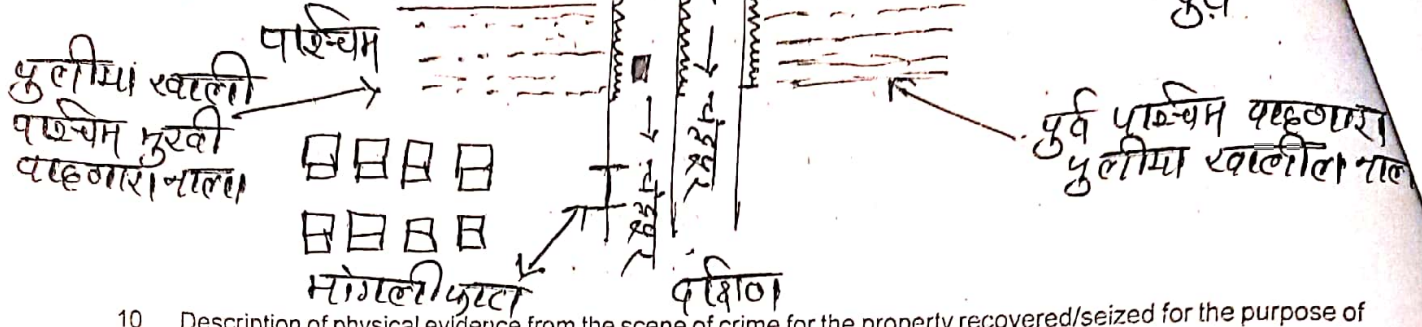 पश्चिम
पुलीया खाली
पश्चिम मुखी
वाहणारा नाला
पुर्व पश्चिम वाहणारा
पुलीया खालील नाला
रस्ता
रस्ता
मांगली फाटा
दक्षिण
10 Description of physical evidence from the scene of crime for the property recovered/seized for the purpose of